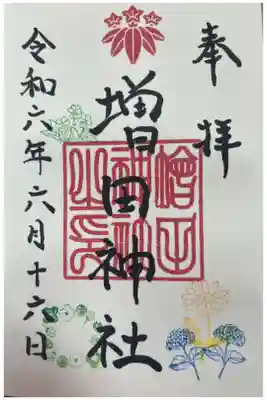 奉拝
増田神社
令和六年六月十六日